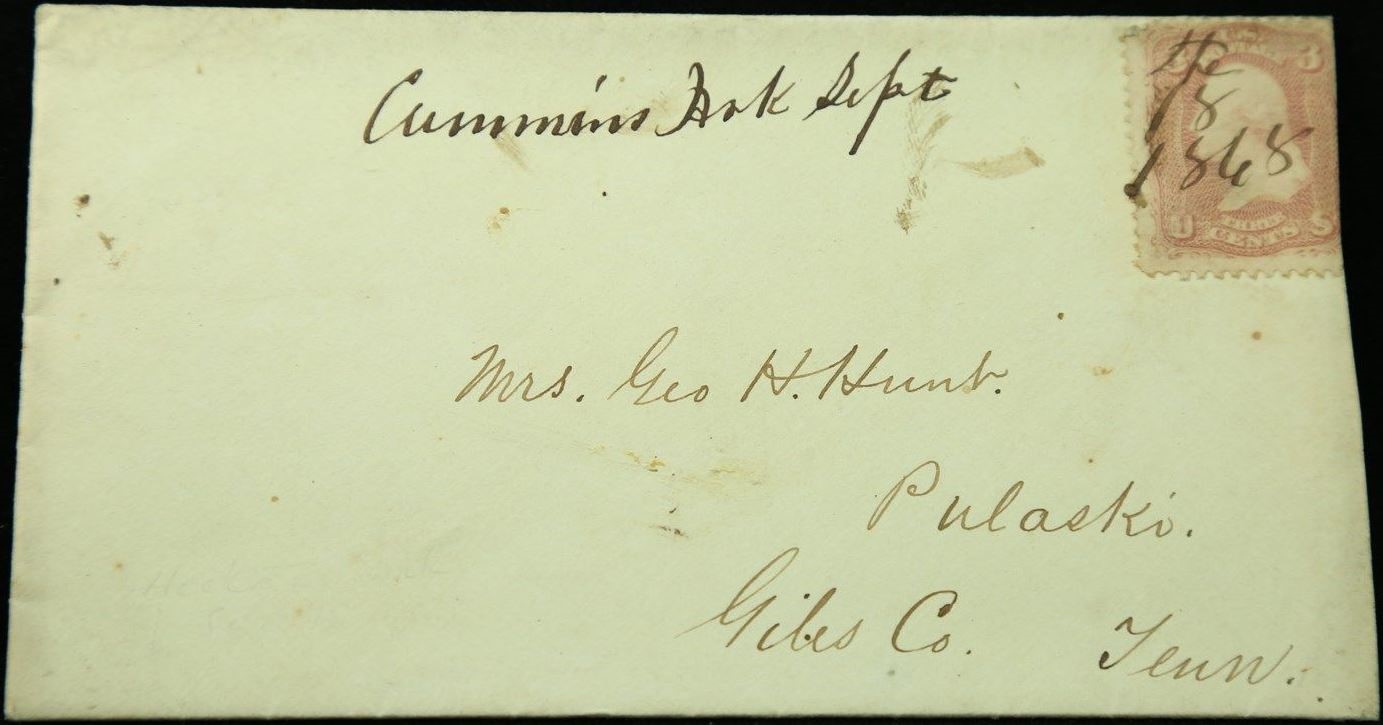 Cummins Ark Sept
the
18
1868
3
U S
THREE
CENTS
Mrs. Geo H. Hunt.
Pulaski.
Giles Co. Tenn.